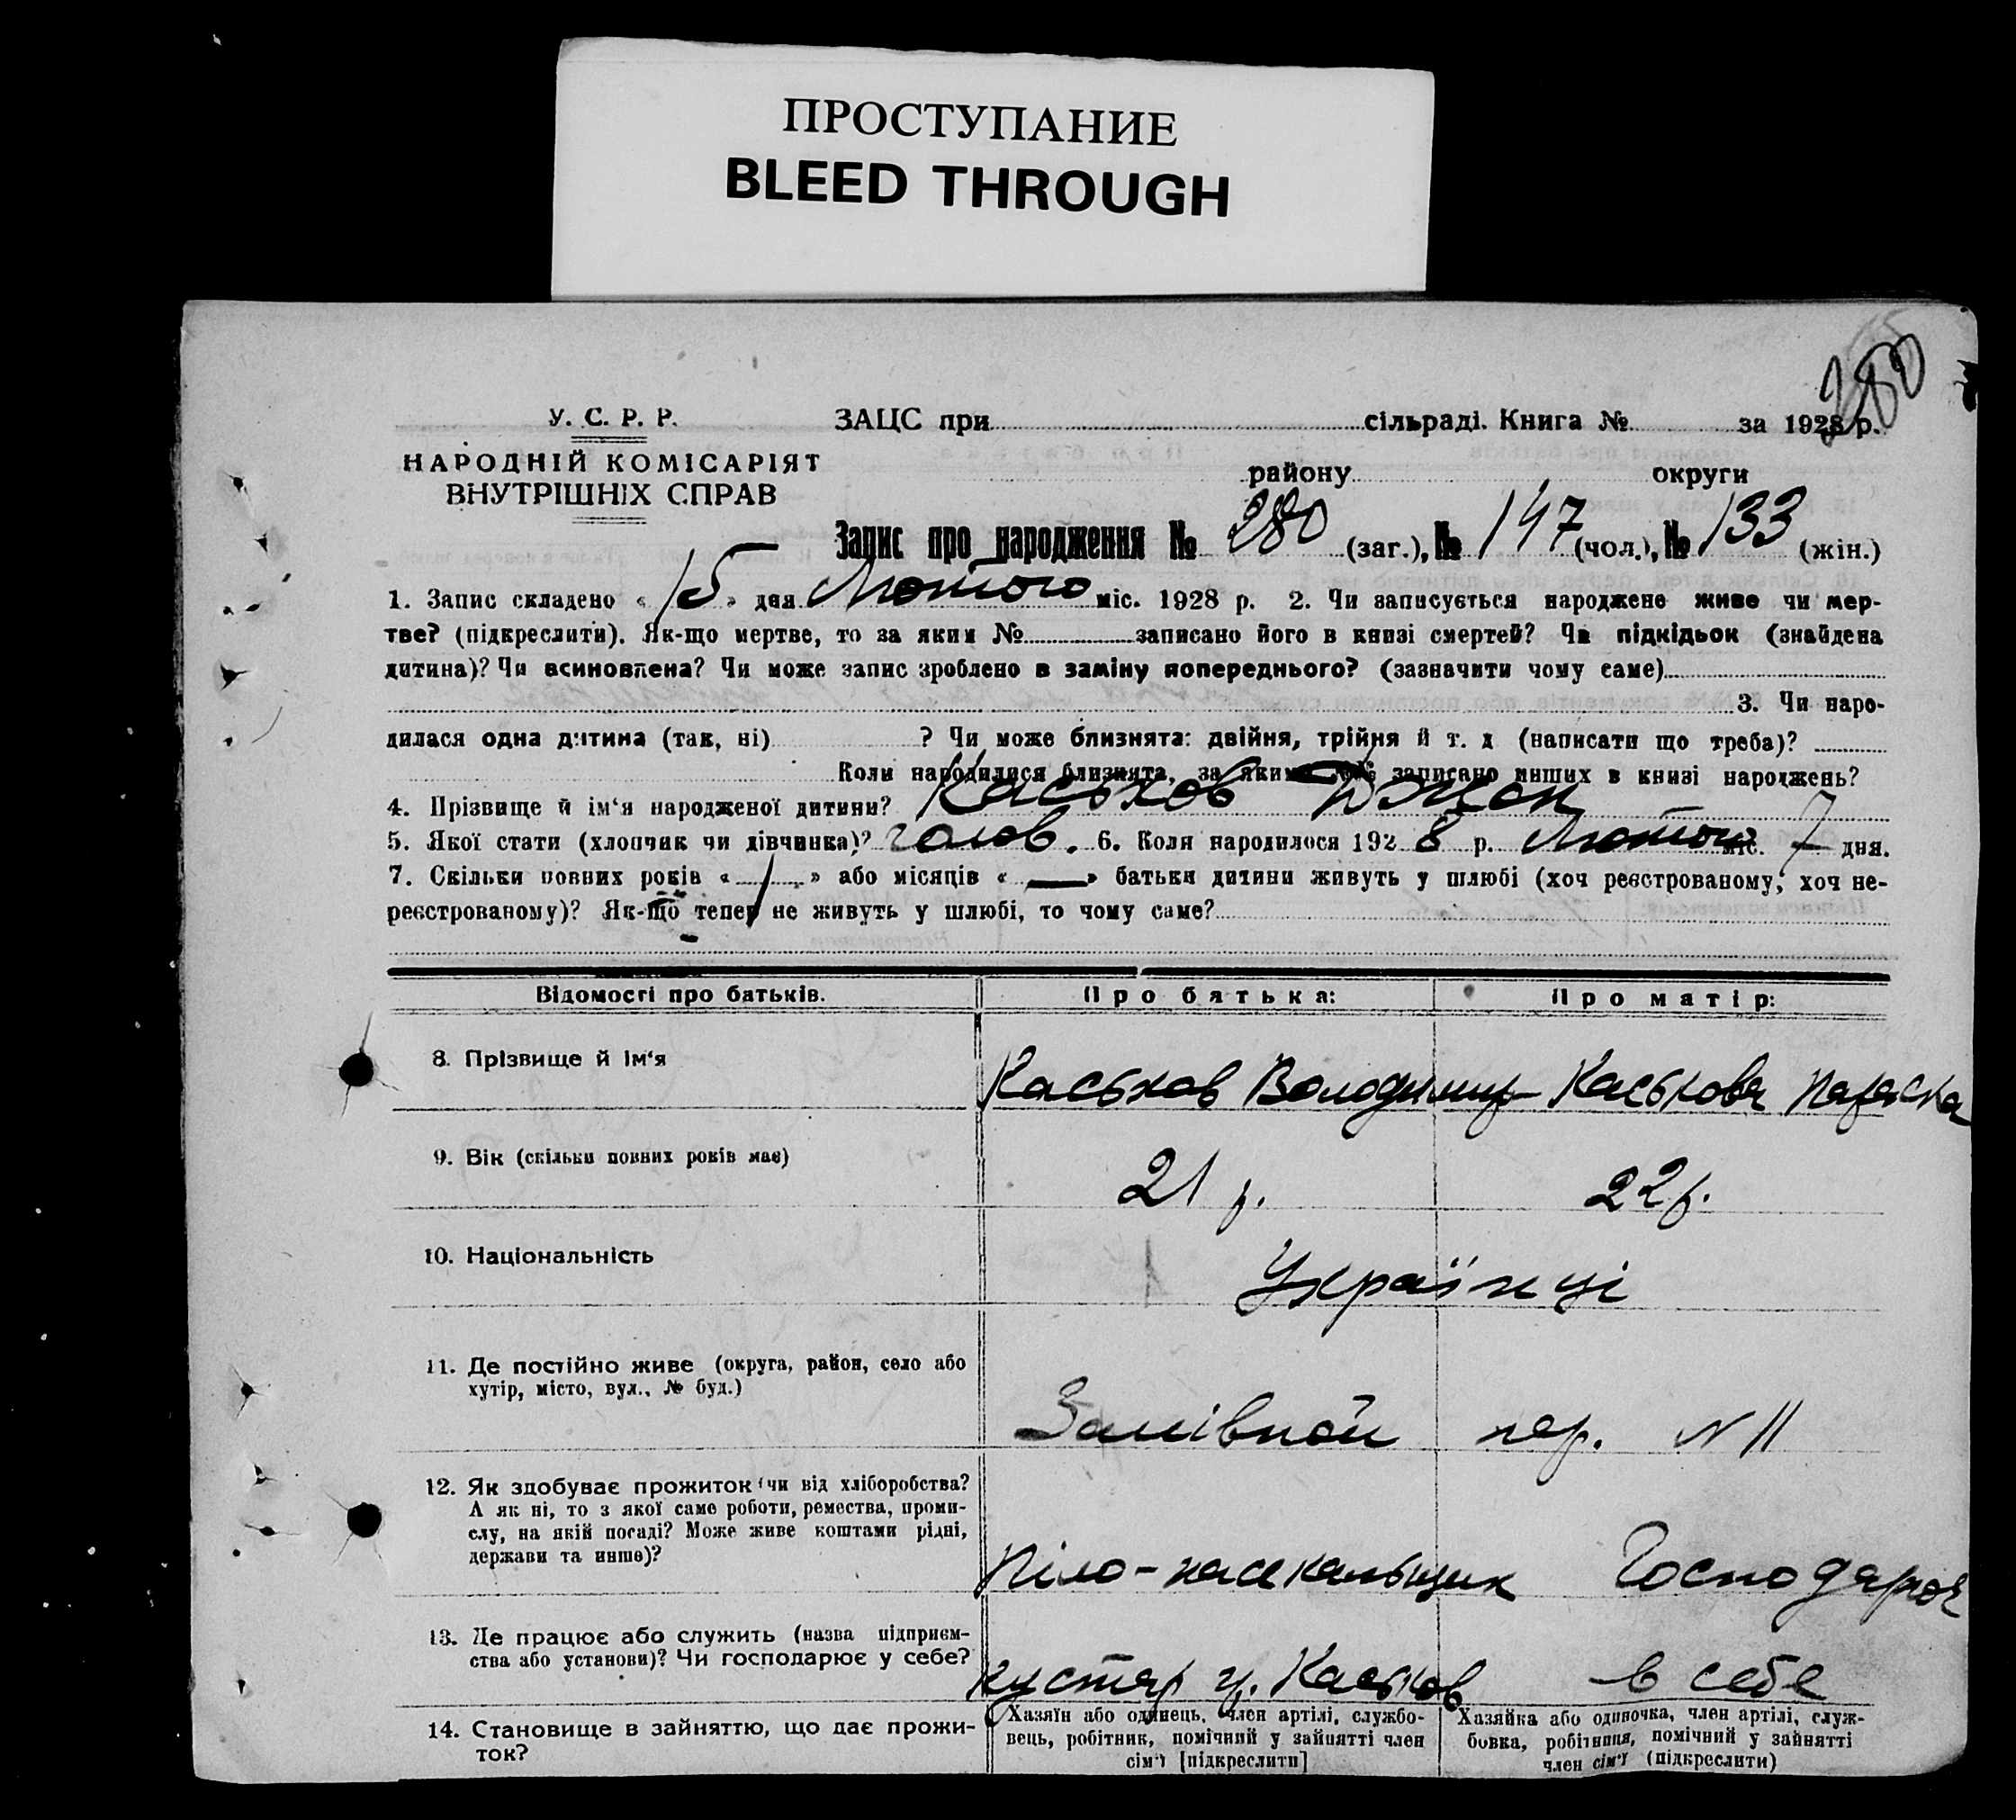 ПРОСТУПАНИЕ
BLEED THROUGH
280
У. С. Р. Р.
ЗАЦС при сільраді. Книга № за 1928 р.
НАРОДНІЙ КОМІСАРІЯТ
ВНУТРІШНІХ СПРАВ
району округи
Запис про народження № 280 (заг.), № 147 (чол.), № 133 (жін.)
1. Запис складено « 15 » дня Лютого міс. 1928 р. 2. Чи записується народжене живе чи мер-
тве? (підкреслити). Як-що мертве, то за яким № записано його в книзі смертей? Чи підкідьок (знайдена
дитина)? Чи всиновлена? Чи може запис зроблено в заміну попереднього? (зазначити чому саме)
3. Чи наро-
дилася одна дитина (так, ні) ? Чи може близнята: двійня, трійня й т. д (написати що треба)?
Коли народилися близнята, за яким № записано инших в книзі народжень?
4. Прізвище й ім'я народженої дитини? Каськов Джон
5. Якої стати (хлопчик чи дівчинка)? чолов. 6. Коли народилося 1928 р. Лютого міс. 7 дня.
7. Скільки повних років « 1 » або місяців « — » батьки дитини живуть у шлюбі (хоч реєстрованому, хоч не-
реєстрованому)? Як-що тепер не живуть у шлюбі, то чому саме?
Відомості про батьків. Про батька: Про матір:
8. Прізвище й ім'я
Каськов Володимир Каськова Параска
9. Вік (скільки повних років має)
21 р. 22 р.
10. Національність
Українці
11. Де постійно живе (округа, район, село або
хутір, місто, вул., № буд.)
пер. N 11
12. Як здобуває прожиток (чи від хліборобства?
А як ні, то з якої саме роботи, ремества, проми-
слу, на якій посаді? Може живе коштами рідні,
держави та инше)?
Піло-насекальщик Господарює
13. Де працює або служить (назва підприєм-
ства або установи)? Чи господарює у себе?
кустар ц. Каськов в себе
14. Становище в зайняттю, що дає прожи-
ток?
Хазяїн або одинець, член артілі, службо-
вець, робітник, помічний у зайнятті член
сім'ї [підкреслити]
Хазяйка або одиночка, член артілі, служ-
бовка, робітниця, помічний у зайнятті
член сім'ї (підкреслити)